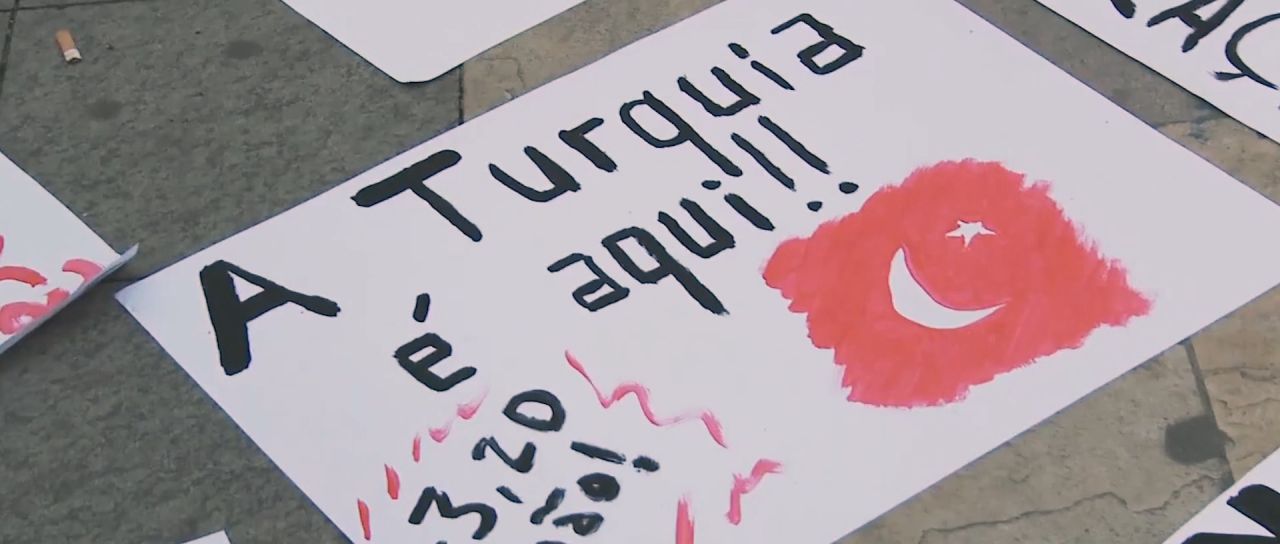 A Turquia
é aqui!!
3,20
não!